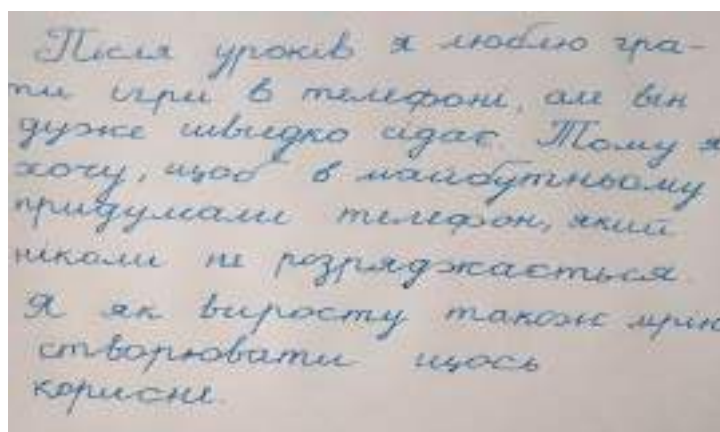 Після уроків я люблю гра-
ти ігри в телефоні, але він
дуже швидко сідає. Тому я
хочу, щоб в майбутньому
придумали телефон, який
ніколи не розряджається.
Я як виросту також мрію
створювати щось
корисне.